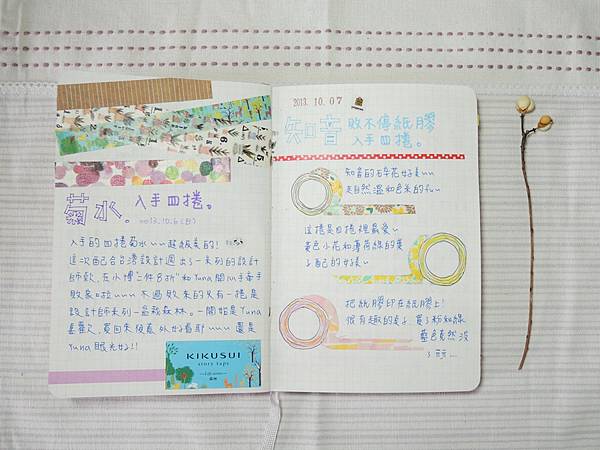 菊水。入手四捲。
2013.10.6(日)
入手的四捲菊水~~超級美的!
這次配合台灣設計週出了一系列的設計
師款,在小博"二件8折"和Yuna開心手牽手
敗家啦~~~ 不過敗來的只有一捲是
設計師系列-蘑菇森林。一開始是Yuna
喜歡,買回來後意外好看耶~~~ 還是
Yuna眼光好!!
KIKUSUI
story tape
2013.10.07
知音
敗不停紙膠
入手四捲。
知音的碎花好美~~
走自然溫和色系的fu~~
這捲是四捲裡最愛~
黃色小花和薄荷綠的葉
子自己的好美~
把紙膠印在紙膠上!
很有趣的点子 買了粉和綠
藍色竟然沒
了 ~